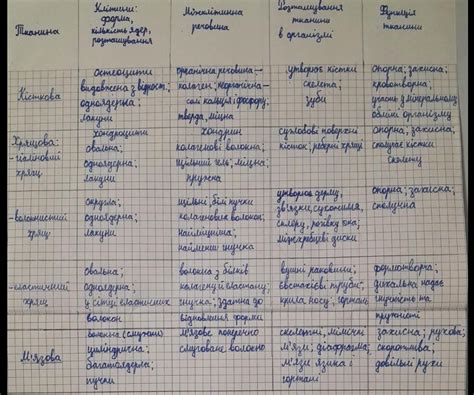 Тканина
Клітини:
форма,
кількість ядер,
розташування
Міжклітинна
речовина
Розташування
тканини
в організмі
Функція
тканини
Кісткова
остеоцити
видовжена з відрост.
одноядерна;
лакуни
органічна речовина —
колаген; неорганічна —
солі кальція і фосфору;
тверда, міцна
утворює кістки
скелета,
зуби
опорна; захисна;
кровотворна;
участь у мінеральному
обміні організму
Хрящова:
- гіаліновий
хрящ
хондроцити
овальна;
одноядерна;
лакуни
хондрин
колагенові волокна;
щільний гель; міцна;
пружна
суглобові поверхні
кісток; реберні хрящі
опорна, захисна;
сполучає кістки
скелету
- волокнистий
хрящ
округла;
одноядерна;
лакуни
щільні білі пучки
колагенових волокон;
найміцніша;
найменш гнучка
утворює дерму,
зв'язки, сухожилля,
склеру, рогівку ока;
міжхребцеві диски
опорна; захисна;
сполучна
- еластичний
хрящ
овальна;
одноядерна;
у сітці еластичних
волокон
волокна з білків
колагену й еластину;
гнучка; здатна до
відновлення форми
вушні раковини;
євстахієві труби;
крила носу; гортань
формотворча;
дихальна надає
гнучкість та
пружність
М'язова
волокна (смужки)
циліндрична;
багатоядерна;
пучки
м'язове поперечно
смуговане волокно
скелетні, мімічні
м'язи; діафрагма;
м'язи язика і
гортані
захисна; рухова;
скоротлива;
довільні рухи